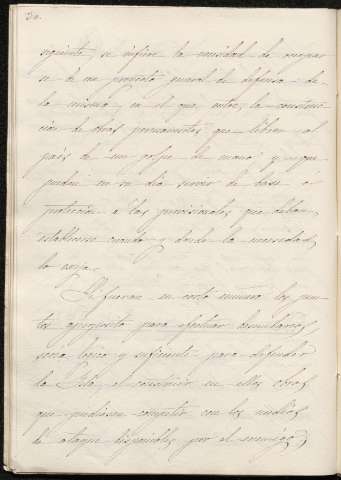 30.
siguiente, se infiere la necesidad de ocupar
se de un proyecto general de defensa de
la misma, en el que entre la construc-
ción de obras permanentes que libren al
país de un golpe de mano y que
puedan en su día servir de base ó
protección á las provisionales que deban
establecerse cuando y donde la necesidad
lo exija.
Si fueran en corto número los pun-
tos apropósito para efectuar desembarcos,
sería lógico y suficiente para defender
la Isla, el construir en ellos obras
que pudiesen competir con los medios
de ataque disponibles por el enemigo;